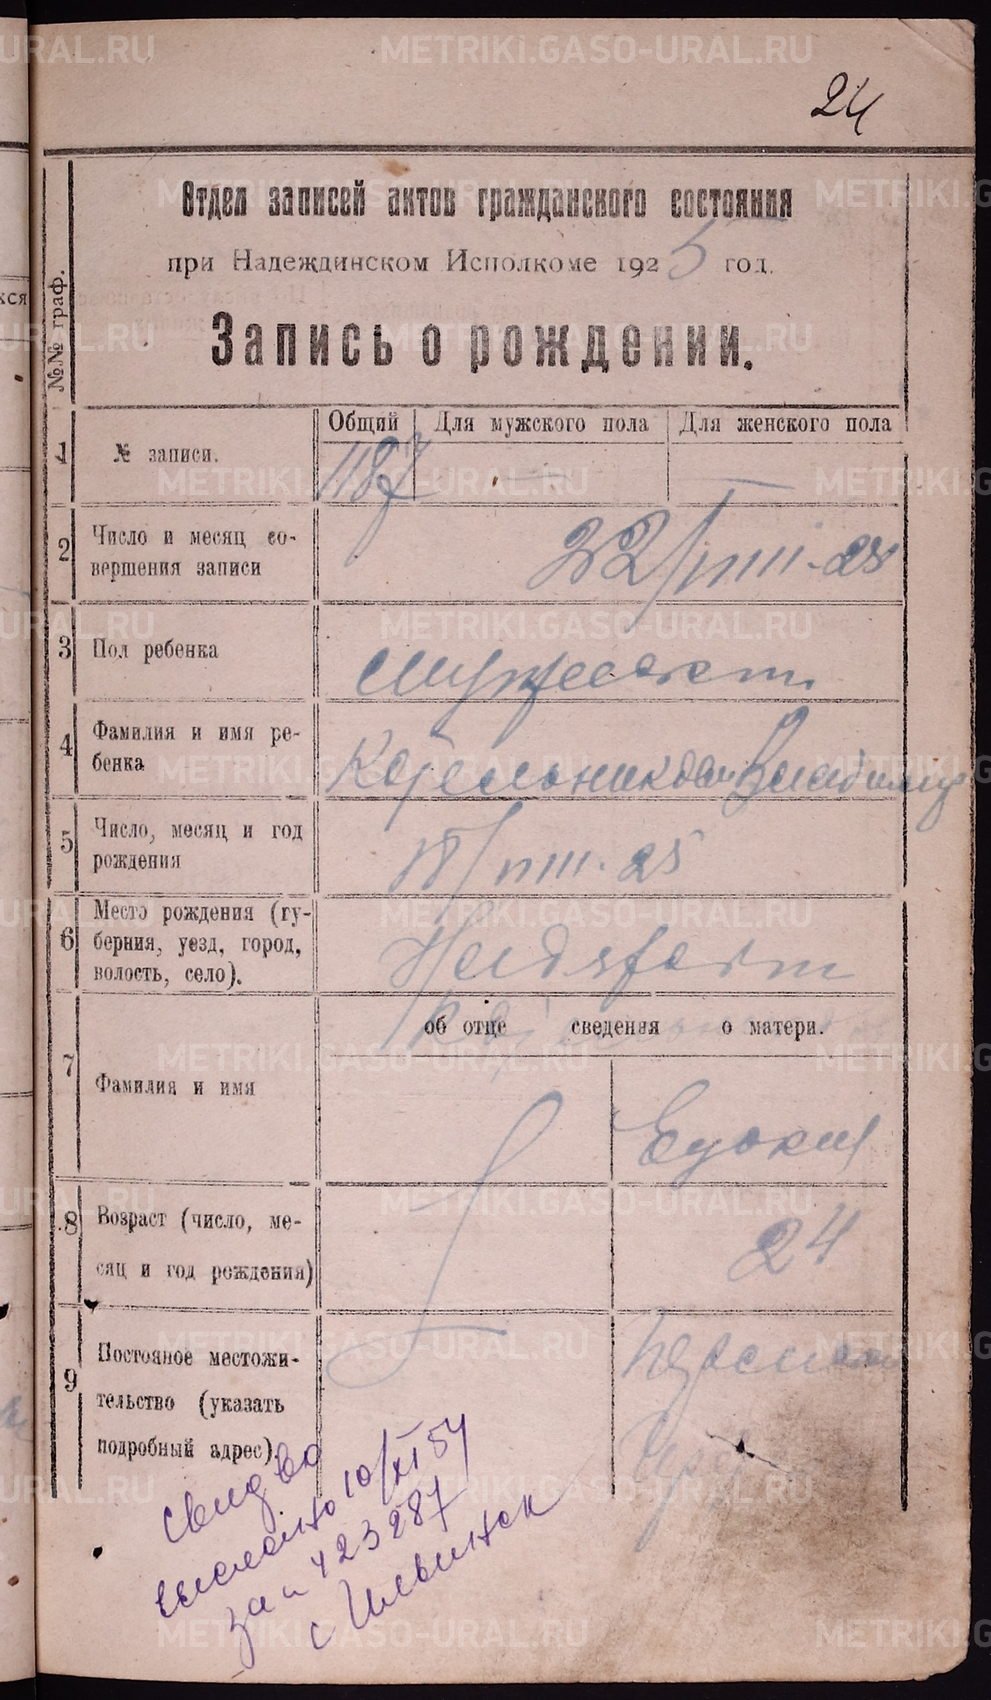 24
Отдел записей актов гражданского состояния
при Надеждинском Исполкоме 1925 год.
Запись о рождении.
№№ граф.
Общий Для мужского пола Для женского пола
1 № записи. 1187 — —
2 Число и месяц со-
вершения записи
22/VIII-25
3 Пол ребенка
мужеской
4 Фамилия и имя ре-
бенка
Владимир
5 Число, месяц и год
рождения
/VIII-25
6 Место рождения (гу-
берния, уезд, город,
волость, село).
об отце сведения о матери.
7 Фамилия и имя
8 Возраст (число, ме-
сяц и год рождения)
24
9 Постоянное местожи-
тельство (указать
подробный адрес).
Свид во
выслано 10/XI 54
за № 423287
с Ильинск
METRIKI.GASO-URAL.RU